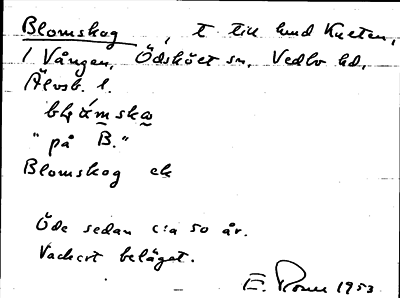 Blomskog, t till lund Kneten,
1 Vången, Ödskölt sn, Vedbo hd,
Älvsb. l.
"på B."
Blomskog ek
Öde sedan c:a 50 år.
Vackert beläget.
E. 1953